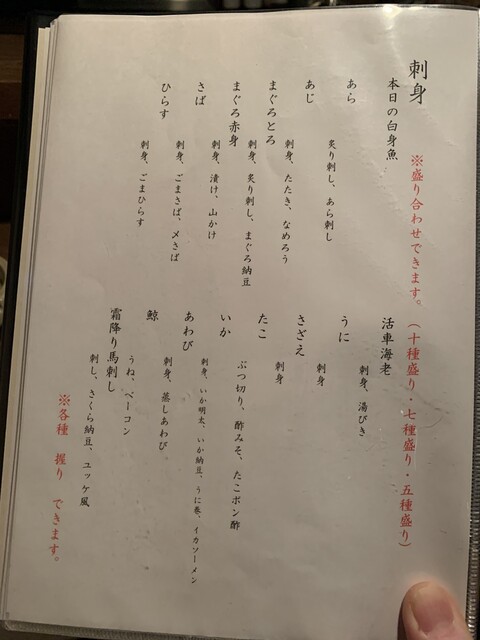 刺身
※盛り合わせできます。(十種盛り・七種盛り・五種盛り)
本日の白身魚
あら
炙り刺し、あら刺し
あじ
刺身、たたき、なめろう
まぐろとろ
刺身、炙り刺し、まぐろ納豆
まぐろ赤身
刺身、漬け、山かけ
さば
刺身、ごまさば、〆さば
ひらす
刺身、ごまひらす
活車海老
刺身、湯びき
うに
刺身
さざえ
刺身
たこ
ぶつ切り、酢みそ、たこポン酢
いか
刺身、いか明太、いか納豆、うに巻、イカソーメン
あわび
刺身、蒸しあわび
鯨
うね、ベーコン
霜降り馬刺し
刺し、さくら納豆、ユッケ風
※各種 握り できます。